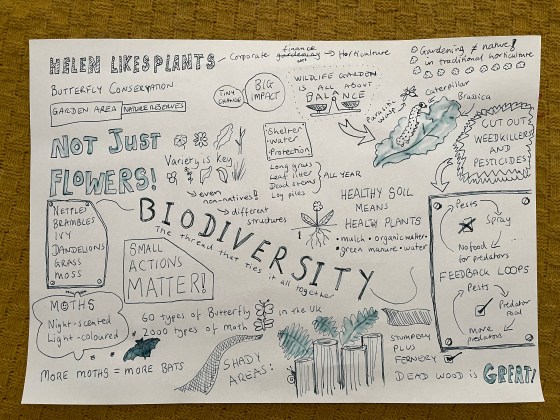 HELEN LIKES PLANTS
Corporate finance → Horticulture
BUTTERFLY CONSERVATION
GARDEN AREA NATURE RESERVES
TINY CHANGE
BIG IMPACT
WILDLIFE GARDEN
IS ALL ABOUT
BALANCE
Gardening ≠ nature!
in traditional horticulture
Parasitic
Wasp
Caterpillar
Brassica
CUT OUT
WEEDKILLERS
AND
PESTICIDES!
NOT JUST
FLOWERS!
Variety is key
→ even
non-natives!
→ different
structures
Shelter
Water
Protection
Long grass
Leaf litter
Dead stems
Log piles
ALL YEAR
NETTLES
BRAMBLES
IVY
DANDELIONS
GRASS
MOSS
BIODIVERSITY
The thread that ties it all together
SMALL
ACTIONS
MATTER!
HEALTHY SOIL
MEANS
HEALTHY PLANTS
• mulch • organic water
• green manure • water
Pests
Spray
No food
for predators
FEEDBACK LOOPS
Pests
Predator
food
More
predators
MOTHS
Night-scented
Light-coloured
MORE MOTHS = MORE BATS
60 types of Butterfly
2000 types of moth
in the UK
SHADY
AREAS:
STUMPERY
PLUS
FERNERY
DEAD WOOD is GREAT!